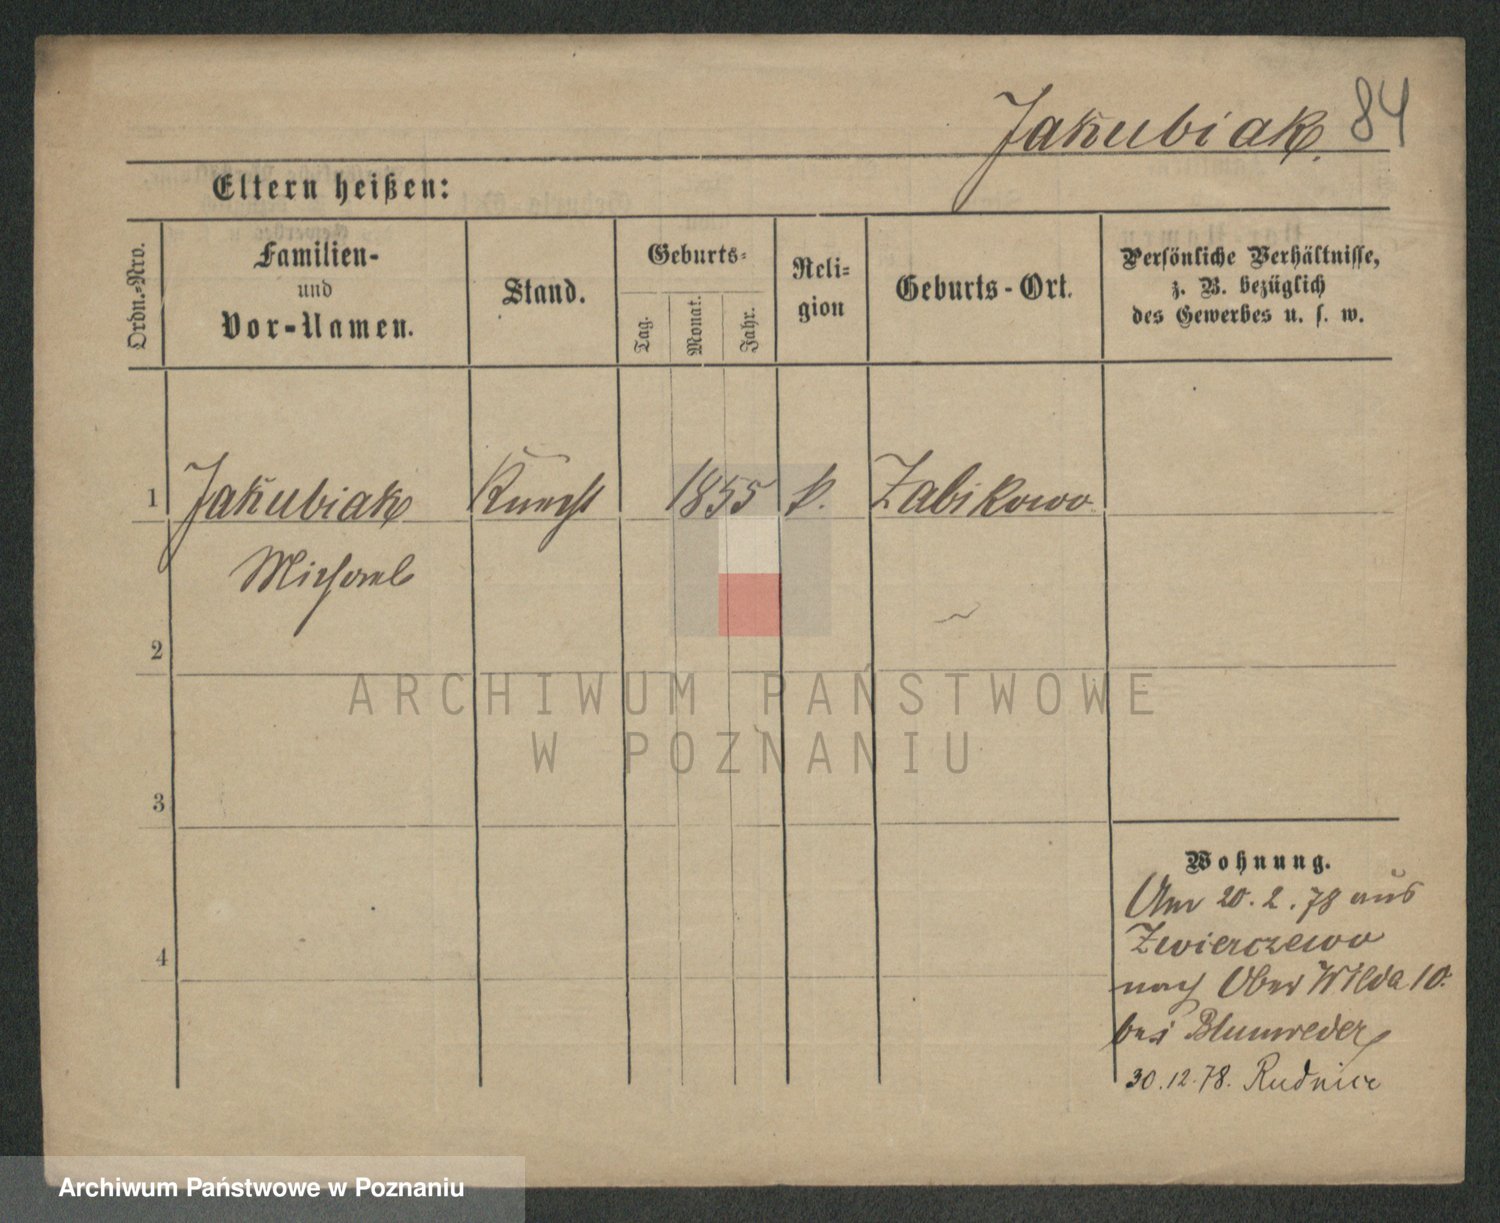 Jakubiak. 84
Eltern heißen:
Ordn.-Nro.
Familien-
und
Vor-Namen.
Stand.
Geburts-
Tag.
Monat.
Jahr.
Reli-
gion
Geburts-Ort.
Persönliche Verhältnisse,
z. B. bezüglich
des Gewerbes u. s. w.
1 Jakubiak Knecht 1855 k. Zabikowo
Michael
2
3
4
Wohnung.
Am 20.2.78 aus
Zwierczewo
nach Ober Wilda 10.
bei Blumreder
30.12.78. Rudnice
ARCHIWUM PAŃSTWOWE
W POZNANIU
Archiwum Państwowe w Poznaniu